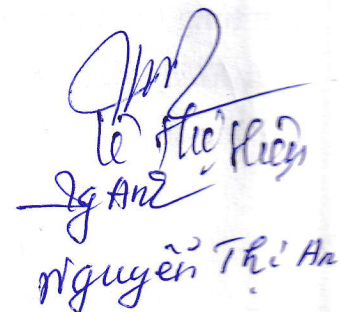 Lê Thị Hiền
Ng An
Nguyễn Thị An